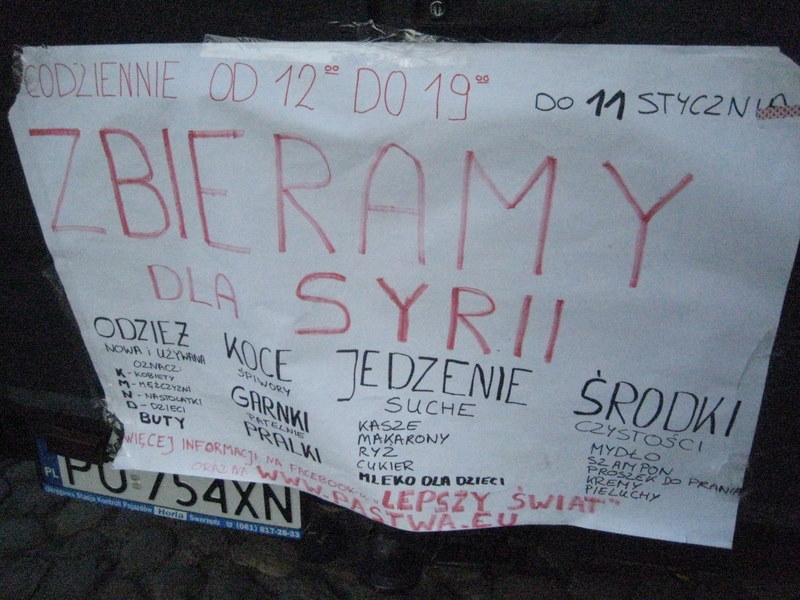 CODZIENNIE OD 12⁰⁰ DO 19⁰⁰ DO 11 STYCZNIA
ZBIERAMY
DLA SYRII
ODZIEŻ
NOWA i UŻYWANA
OZNACZ:
K - KOBIETY
M - MĘŻCZYŹNI
N - NASTOLATKI
D - DZIECI
BUTY
KOCE
ŚPIWORY
GARNKI
PATELNIE
PRALKI
JEDZENIE
SUCHE
KASZE
MAKARONY
RYŻ
CUKIER
MLEKO DLA DZIECI
ŚRODKI
CZYSTOŚCI
MYDŁO
SZAMPON
PROSZEK DO PRANIA
KREMY
PIELUCHY
WIĘCEJ INFORMACJI, NA FACEBOOK-U "LEPSZY ŚWIAT"
ORAZ NA WWW.PASTWA.EU
PL PO 754XN
Okręgowa Stacja Kontroli Pojazdów Horla Swarzędz ☎ (061) 817-26-33